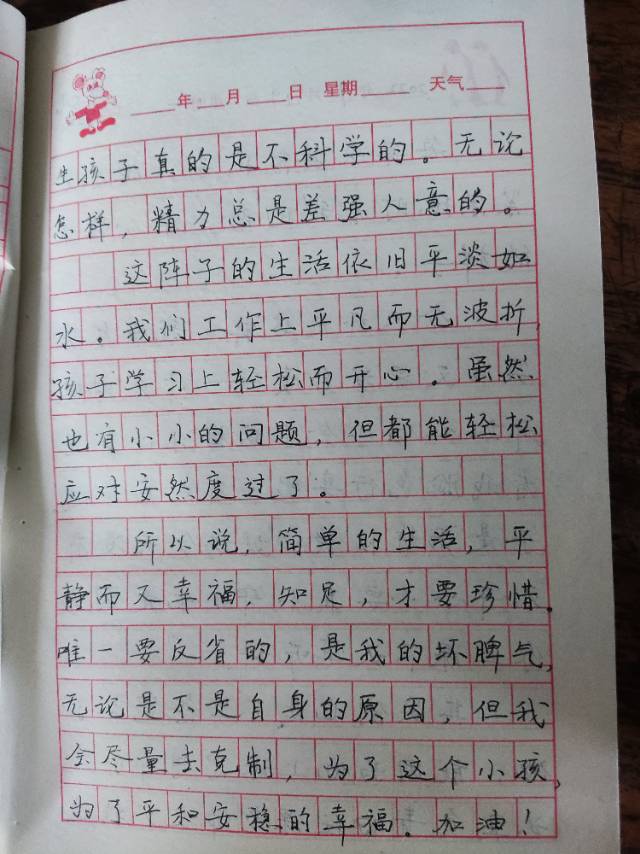 年 月 日 星期 天气
生孩子真的是不科学的。无论
怎样，精力总是差强人意的。
这阵子的生活依旧平淡如
水。我们工作上平凡而无波折，
孩子学习上轻松而开心。虽然
也有小小的问题，但都能轻松
应对安然度过了。
所以说，简单的生活，平
静而又幸福，知足，才要珍惜。
唯一要反省的，是我的坏脾气，
无论是不是自身的原因，但我
会尽量去克制，为了这个小孩，
为了平和安稳的幸福。加油！